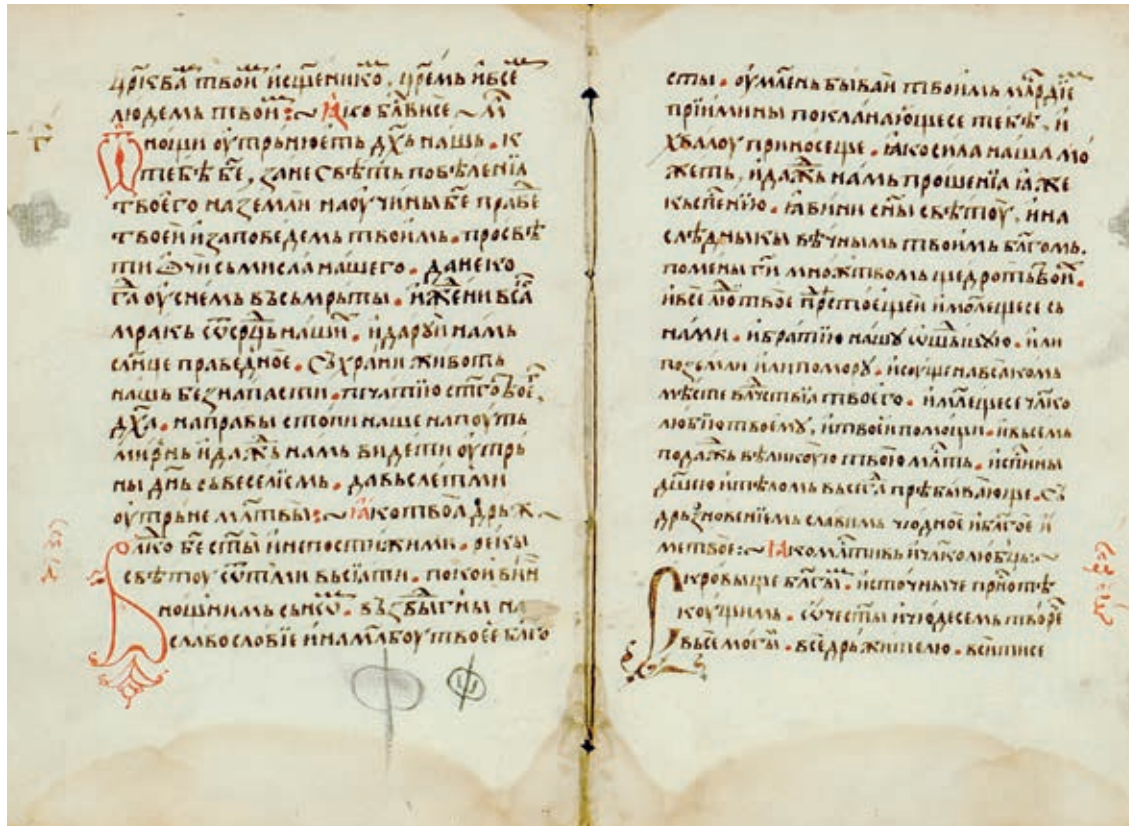 црⷦ҇квам̑ твои҆м̑ и҆сще҃ником̑. цр҃емь и҆ всѣм̑
людемь твои҆м̑:~ Ꙗ҆ко бл҃висе ~ мⷧ҇
нощи ѹ҆трьнюеть дх҃ь нашь. к
тебѣ бе҃, зане свѣть повѣленїа
твоего на земли наѹ҆чи ны бе҃ правⷣе
твоеи҆ и҆ заповедемь твоимь. просвѣ
ти ѡ҆чи сьмисла нашего. да не ко
гⷣа ѹ҆снемь вь сьмрьты. и҆жⷣени всⷦ҇а
мракь ѿ срⷣць наши҆х̑. и҆ дарѹи҆ намь
слн҃це праведное. Сьхрани животь
нашь без напасти. печатїю ст҃го твоег̑,
дх҃а. направы стопи наше на пѹть
мирнь и҆ дажⷣь намь видети ѹ҆трь
ны дн҃ь сь веселїемь. да вьслетли
ѹ҆трьне мл҃твы:~ Ꙗ҆ко твоꙗ дрьж ~
лⷣко бе҃ ст҃ы и҆ непостижими. рекы
свѣтѹ ѿ тми вьсїати. покои вь ни҆
нощнимь сьнѡм̑. вьзⷣвыгны на
славословїе и҆ на мл҃бѹ твоее҆ бл҃го
сты. ѹ҆млⷭ҇ень бываи твоимь млⷭ҇рдїем̑
прїими ны покланающесе тебе. и҆
хвалѹ приносеще. ꙗ҆ко сила наша мо
жеть, и҆ дажⷣь намь прошенїа ꙗ҆же
кь спⷭ҇енїю. ꙗ҆ви ни сн҃ы свѣтѹ, и҆ на
слѣдныкы вѣчнымь твоимь бл҃гомь.
помены гⷭ҇и множⷭ҇твомь щедроть твои҆х̑.
и҆ все люⷣ твое прⷣестоещеи҆ и҆ молещесе сь
нами. и҆ братїю нашꙋ ѡшьⷣшꙋю. и҆ли
по земли и҆ли по морꙋ. и҆ сѹще на всакомь
мѣсте влⷣчствїа твоего. и҆ млⷧ҇ещесе чл҃ко
любїю твоемꙋ, и҆ твоеи помощи. и҆ вьсемь
подажⷣь великѹю твою млⷭ҇ть. и҆ сп҃ни ны
дш҃ею и҆ тѣломь вьсегⷣа прѣбывающе. Сь
дрьзновенїемь славимь чюдное и҆ бл҃гое и҆
ме твое:~ Ꙗ҆ко млⷭ҇тивь и҆ чл҃колюбць:~
кровыще бл҃гым̑. и҆сточныче прⷭ҇нотѣ
кѹщимь. ѿче ст҃ы и҆ чюдесемь творче
вьсемогы. вседрьжителю. вси ти се